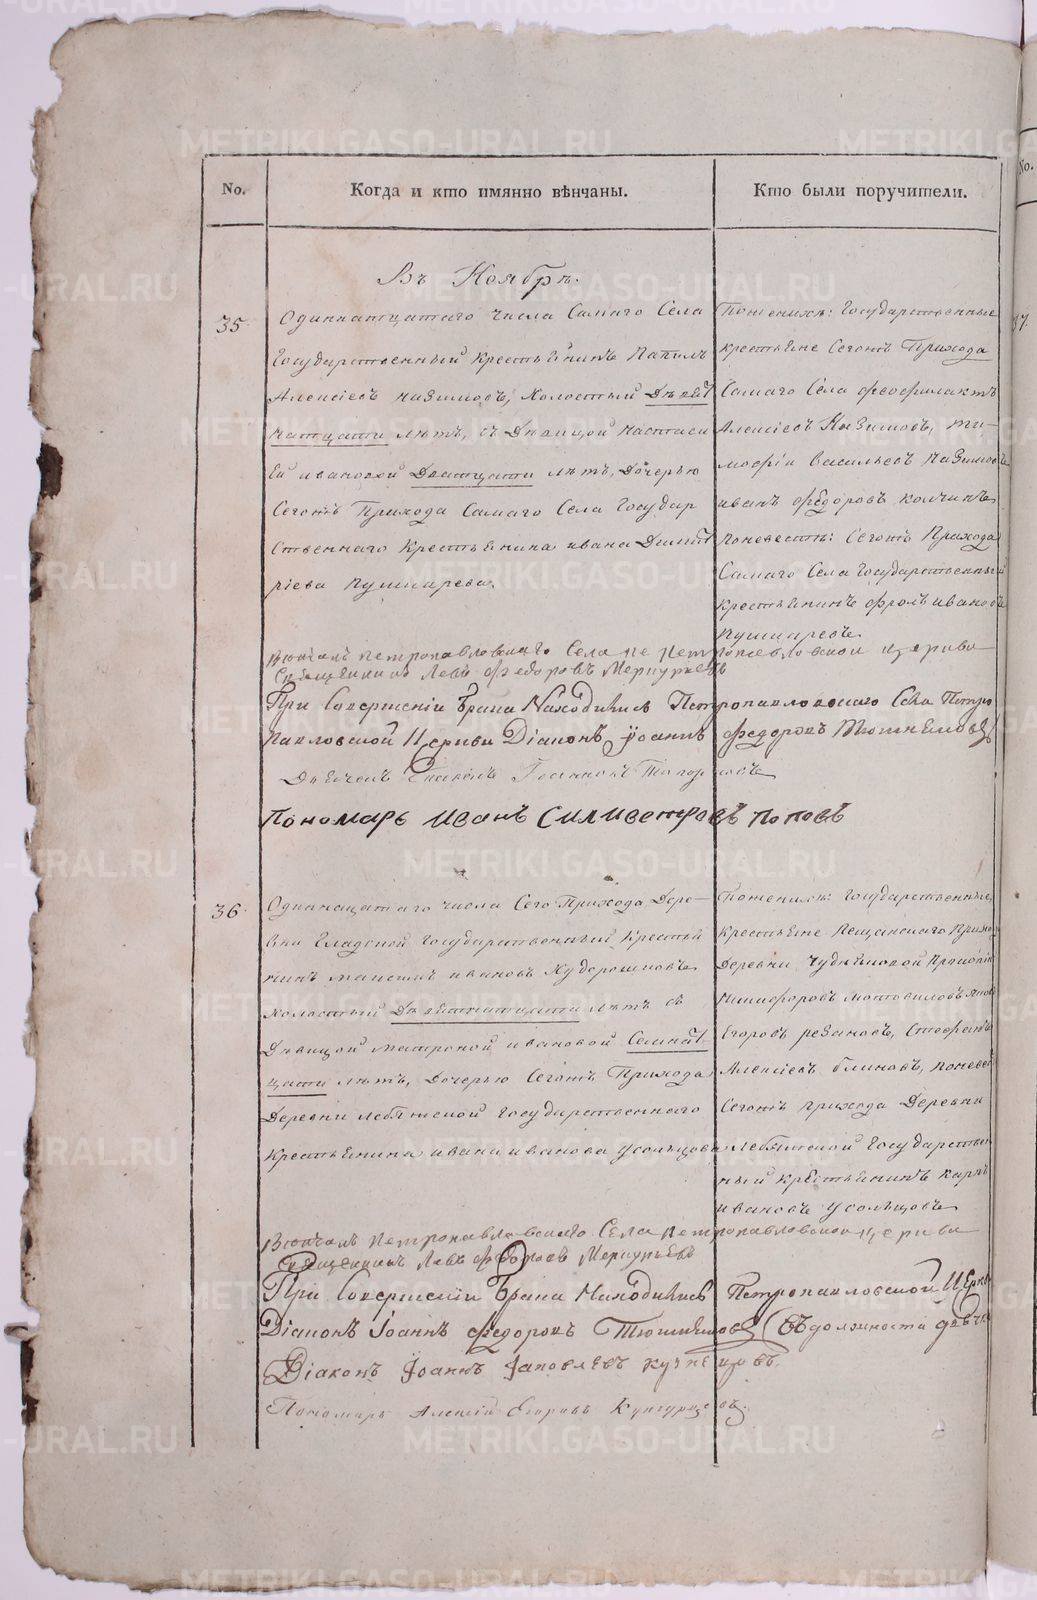 No.
Когда и кто имянно вѣнчаны.
Кто были поручители.
Въ Ноябрѣ.
35.
Одиннатцатаго числа Самаго Села
Государственный крестьянинъ
Алексіевъ Казимовъ, холостый Девят
натцати лѣтъ, съ Дѣвицой Настась
ей ивановой Дватцати лѣтъ, Дочерью
Сегожъ Прихода Самаго Села Государ
ственнаго Крестьянина ивана Димит
ріева Пушкарева.
Поженихѣ: Государственные
крестьяне Сегожъ Прихода
Самаго Села Феофилактъ
Алексіевъ Казимовъ, ти-
мофѣй Васильевъ Казимовъ
иванъ Федоровъ колчинъ
Поневестѣ: Сегожъ Прихода
Самаго Села Государственный
крестьянинъ Фролъ ивановъ
Пушкаревъ.
Вѣнчалъ Петропавловскаго Села Петропавловской церкви
Священникъ Левъ Федоровъ Меркурьевъ
При Совершеніи Брака Находились Петропавловскаго Села Петро
павловской Церкви Діаконъ Іоаннъ Федоровъ Тюшняковъ
Дьячекъ Топорковъ
Пономарь Иванъ Силивестровъ Поповъ
36.
Одиннацатаго числа Сего Прихода Дере-
вни Гладской Государственный Крестья
нинъ Максимъ ивановъ Худорошковъ
холостый Девятнатцати лѣтъ съ
Дѣвицой матроной ивановой Семнат
цати лѣтъ, Дочерью Сегожъ Прихода
Деревни лебяжской Государственнаго
Крестьянина ивана иванова усольцова
Поженихѣ: Государственные
Крестьяне Пещанскаго Прихо
Деревни Чудиновой Прокопій
Никифоровъ мотовиловъ яковъ
Егоровъ резановъ, Стефанъ
Алексіевъ блиновъ, поневе
Сегожъ прихода Деревни
Лебяжской Государствен
ный крестьянинъ карпъ
ивановъ усольцовъ
Вѣнчалъ Петропавловскаго Села Петропавловской церкви
Священникъ Левъ Федоровъ Меркурьевъ
При Совершеніи Брака Находились Петропавловской Церк
Діаконъ Іоаннъ Федоровъ Тюшняковъ Въ должности дьячк
Діаконъ Іоаннъ Іаковлевъ кузнецовъ.
Пономарь Алексій Егоровъ Кунгурцовъ.
METRIKI.GASO-URAL.RU